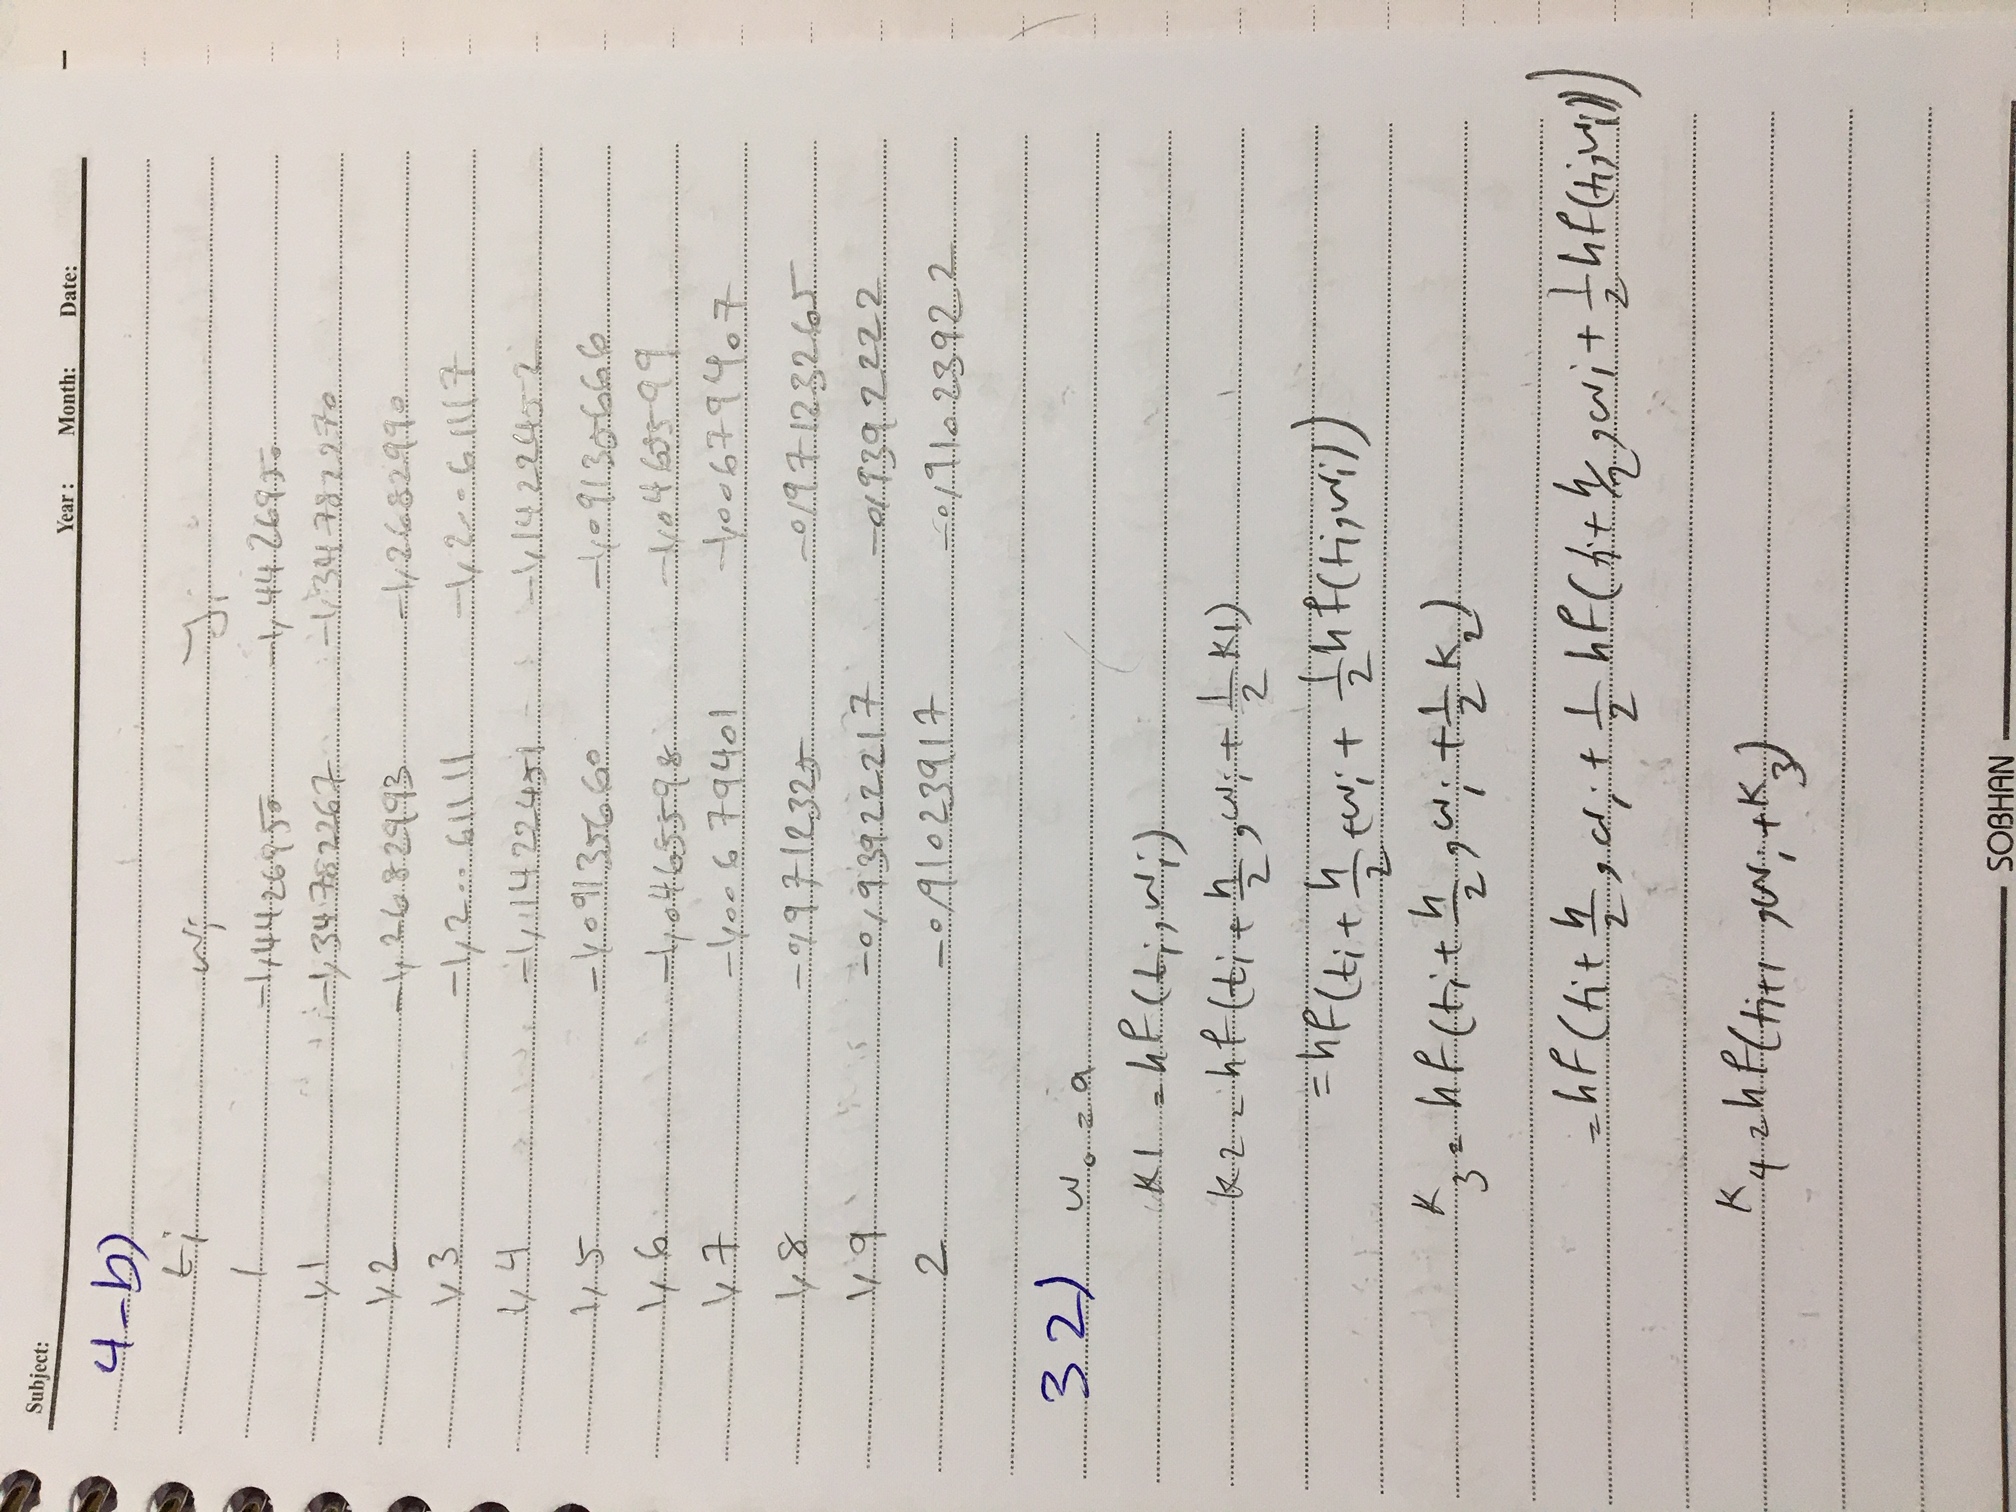 Subject: Year: Month: Date:
4-b)
ti wi yi
1 -1,4426950 -1,4426950
1,1 -1,34782267 -1,34782270
1,2 -1,2682993 -1,2682990
1,3 -1,2006111 -1,20061117
1,4 -1,1422451 -1,1422452
1,5 -1,09135660 -1,09135666
1,6 -1,0465598 -1,0465599
1,7 -1,00679401 -1,00679407
1,8 -0,9712325 -0,97123265
1,9 -0,93922217 -0,93922222
2 -0,91023917 -0,91023922
32) w₀ = a
K1 = hf(ti, wi)
K2 = hf(ti + h/2, wi + 1/2 K1)
= hf(ti + h/2, wi + 1/2 hf(ti, wi))
K3 = hf(ti + h/2, wi + 1/2 K2)
= hf(ti + h/2, wi + 1/2 hf(ti + h/2, wi + 1/2 hf(ti, wi)))
K4 = hf(ti+1, wi + K3)
SOBHAN